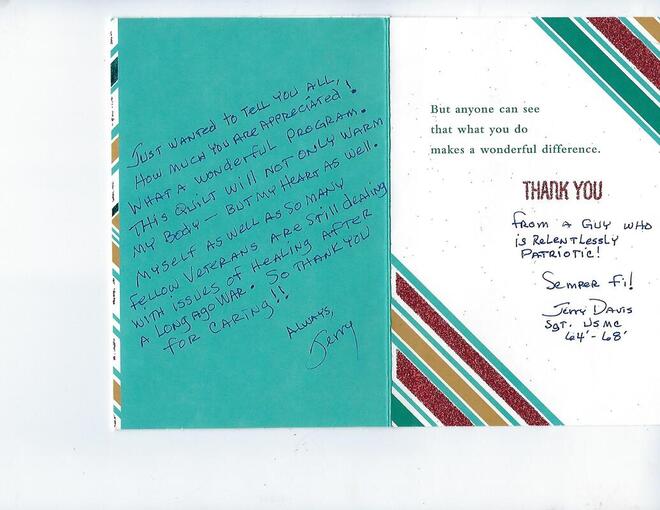 Just wanted to tell you all,
How much you are appreciated!
What a wonderful program.
This quilt will not only warm
my body – but my heart as well.
Myself as well as so many
fellow veterans are still dealing
with issues of healing after
a long ago war. So thank you
for caring!!
Always,
Jerry
But anyone can see
that what you do
makes a wonderful difference.
THANK YOU
From a guy who
is relentlessly
patriotic!
Semper Fi!
Jerry Davis
Sgt. USMC
64'-68'